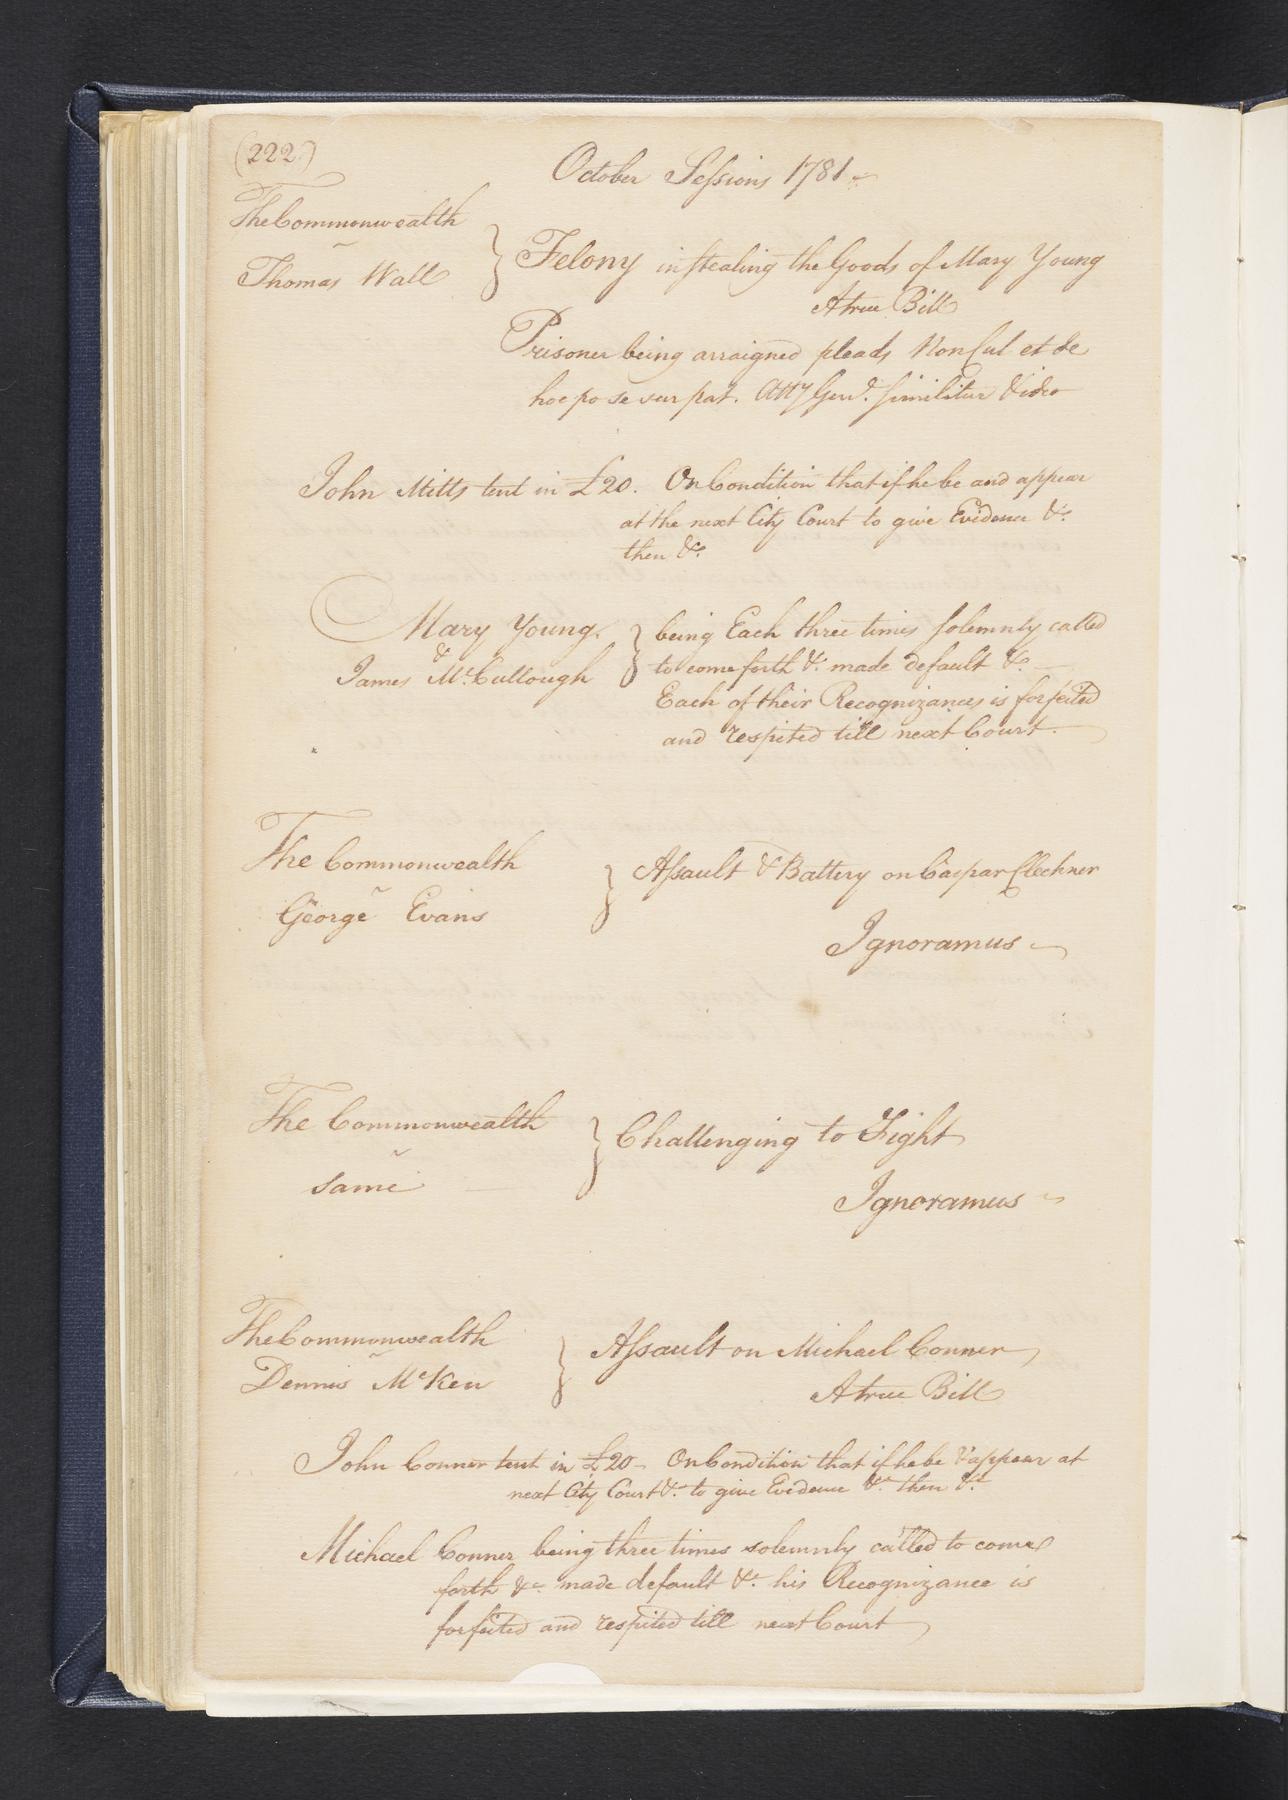 (222)
October Sessions 1781
The Commonwealth
Thomas Wall
Felony in stealing the Goods of Mary Young
A true Bill
Prisoner being arraigned pleads Non Cul et de
hoc po se sur pat. Atty Genl. similiter & ideo
John Mitts tent in £20. On Condition that if he be and appear
at the next City Court to give Evidence &c.
then &c.
Mary Young
&
James McCullough
being Each three times solemnly called
to come forth &c. made default &c
Each of their Recognizances is forfeited
and respited till next Court.
The Commonwealth
George Evans
Assault & Battery on Caspar Clechner
Ignoramus
The Commonwealth
same
Challenging to Fight
Ignoramus
The Commonwealth
Dennis McKen
Assault on Michael Conner
A true Bill
John Conner tent in £20 On Condition that if he be & appear at
next City Court &c. to give Evidence &c. then &c.
Michael Conner being three times solemnly called to come
forth &c. made default &c. his Recognizance is
forfeited and respited till next Court